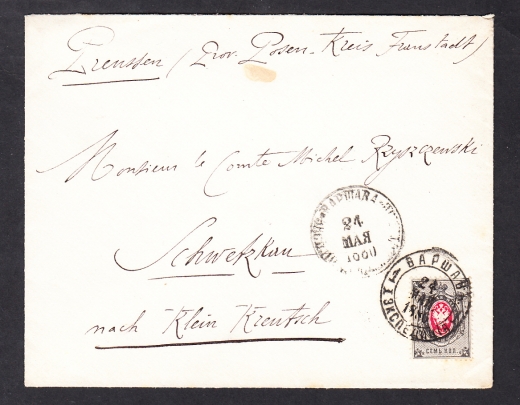 Preussen (Prov. Posen-Kreis Fraustadt)
Monsieur le Comte Michel Rzyszczewski
Schwetzkau
nach Klein Kreutsch
ВАРШАВА
24
МАЯ
ВАРШАВА
24
СЕМЬ КОП.